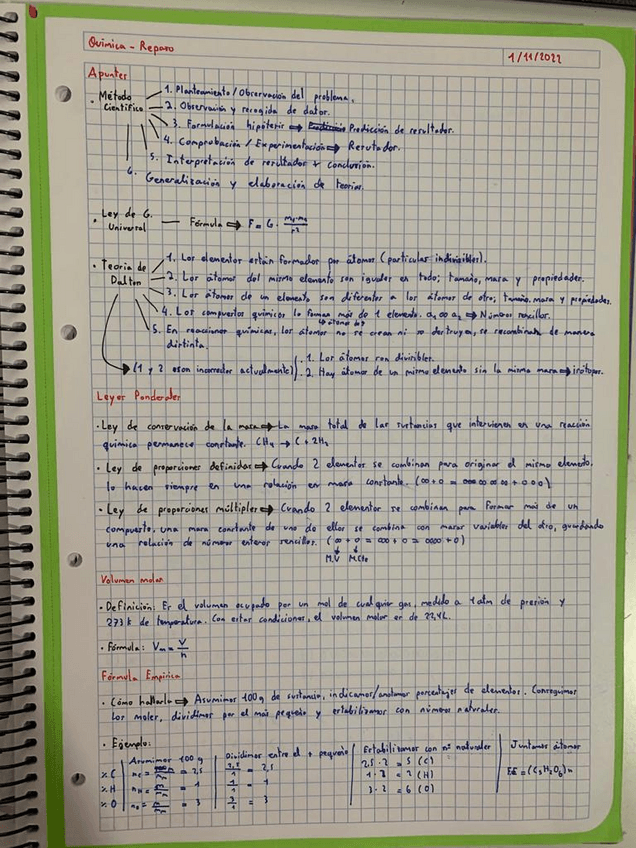 Química - Repaso
1/11/2022
Apuntes
· Método Científico
1. Planteamiento / Observación del problema.
2. Observación y recogida de datos.
3. Formulación hipótesis ⇒ Predicción de resultados.
4. Comprobación / Experimentación ⇒ Resultados.
5. Interpretación de resultados + conclusión.
6. Generalización y elaboración de teorías.
· Ley de G. Universal — Fórmula ⇒ F = G · m₁·m₂ / r²
· Teoría de Dalton
1. Los elementos están formados por átomos (partículas indivisibles).
2. Los átomos del mismo elemento son iguales en todo; tamaño, masa y propiedades.
3. Los átomos de un elemento son diferentes a los átomos de otro; tamaño, masa y propiedades.
4. Los compuestos químicos lo forman más de 1 elemento.
⇒ Números sencillos.
5. En reacciones químicas, los átomos no se crean ni se destruyen, se recombinan de manera
distinta.
(1 y 2 son incorrectos actualmente)
1. Los átomos son divisibles.
2. Hay átomos de un mismo elemento sin la misma masa ⇒ isótopos.
Leyes Ponderales
· Ley de conservación de la masa ⇒ La masa total de las sustancias que intervienen en una reacción
química permanece constante. CH₄ → C + 2H₂
· Ley de proporciones definidas ⇒ Cuando 2 elementos se combinan para originar el mismo elemento,
lo hacen siempre en una relación en masa constante.
· Ley de proporciones múltiples ⇒ Cuando 2 elementos se combinan para formar más de un
compuesto, una masa constante de uno de ellos se combina con masas variables del otro, guardando
una relación de números enteros sencillos.
M.V M.Cte
Volumen molar
· Definición: Es el volumen ocupado por un mol de cualquier gas, medido a 1 atm de presión y
273 k de temperatura. Con estas condiciones, el volumen molar es de 22,4L.
· Fórmula: Vm = V / n
Fórmula Empírica
· Cómo hallarla ⇒ Asumimos 100g de sustancia, indicamos/anotamos porcentajes de elementos. Conseguimos
los moles, dividimos por el más pequeño y estabilizamos con números naturales.
· Ejemplo:
Asumimos 100 g
Dividimos entre el + pequeño
Estabilizamos con nº naturales
Juntamos átomos
% C
= 2,5
2,5 / 1 = 2,5
2,5 · 2 = 5 (C)
% H
= 1
1 / 1 = 1
1 · 2 = 2 (H)
% O
= 3
3 / 1 = 3
3 · 2 = 6 (O)
FE = (C₅H₂O₆)n